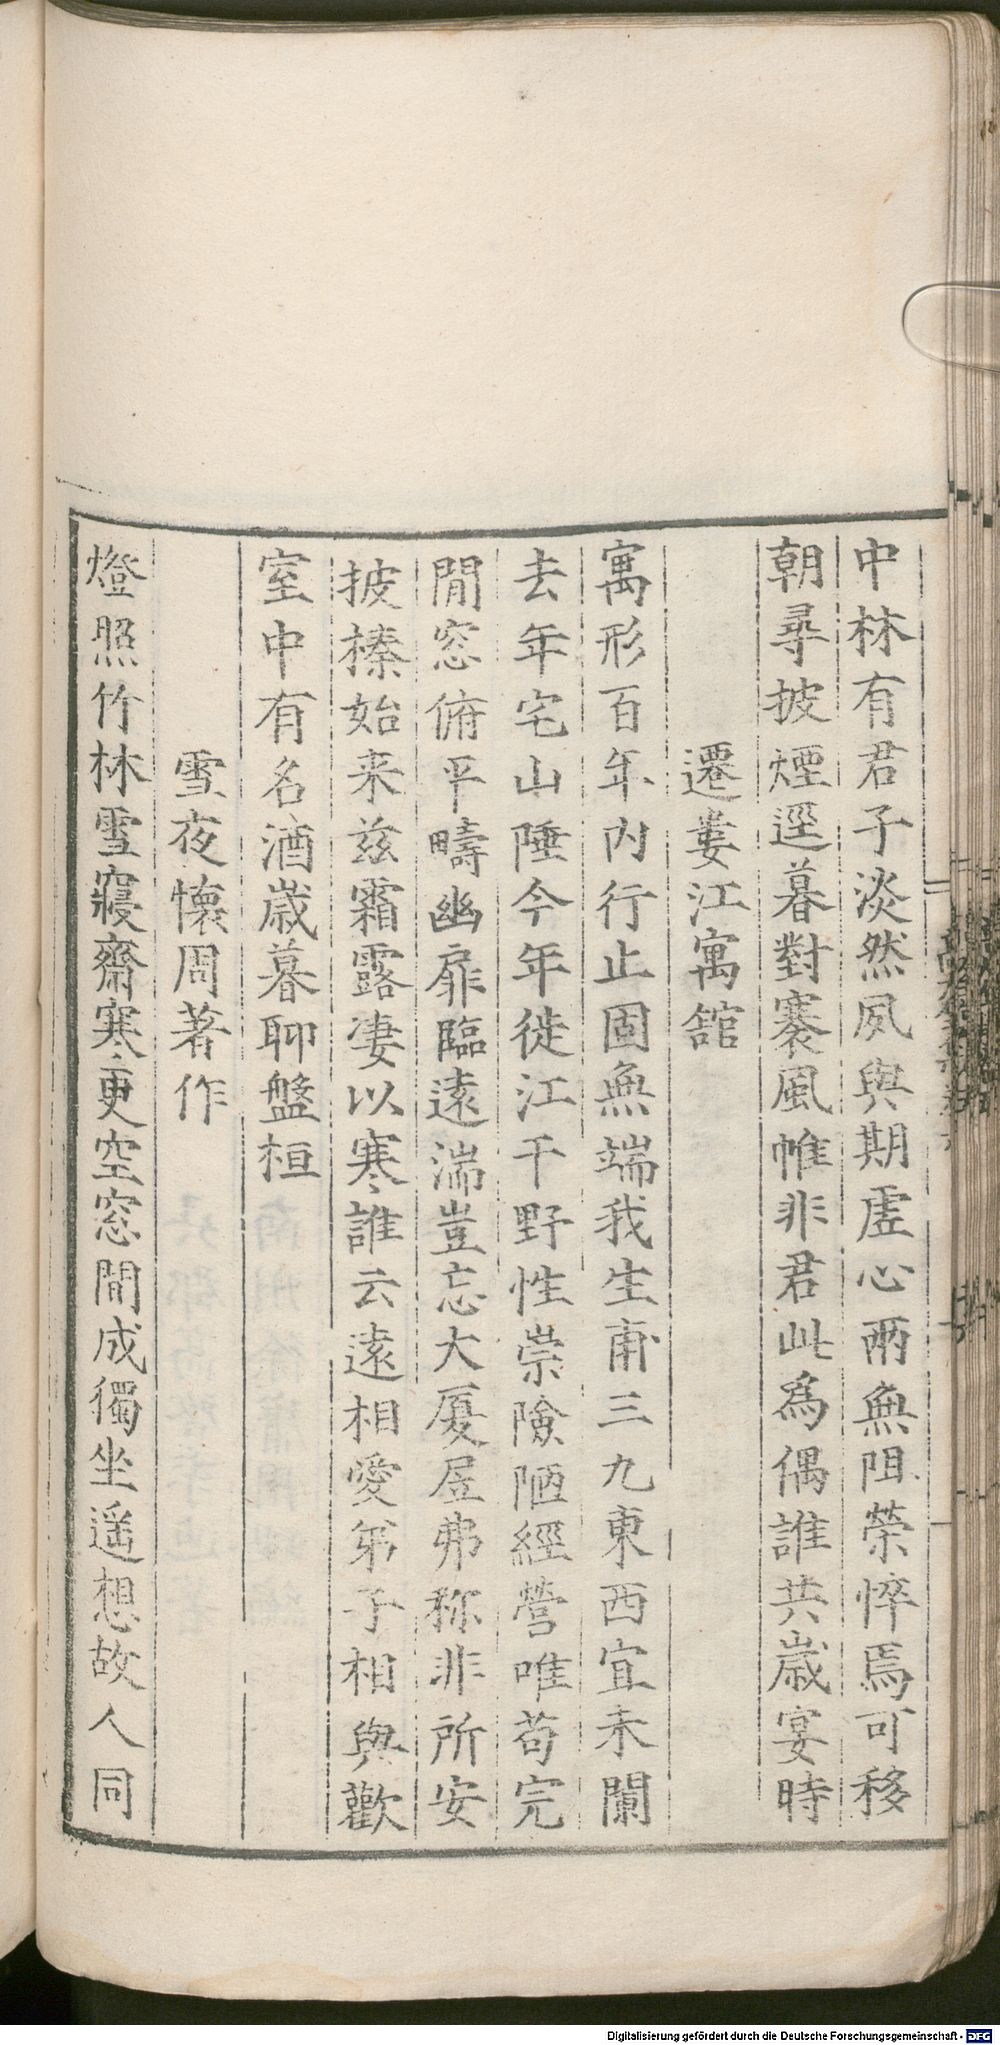 中林有君子淡然夙與期虛心兩無阻榮悴焉可移
朝尋披煙逕暮對褰風帷非君此為偶誰共歲宴時
遷婁江寓舘
寓形百年内行止固無端我生甫三九東西宜未闌
去年宅山陲今年徙江干野性崇險陋經營唯苟完
閒窓俯平疇幽扉臨遠湍豈忘大厦居弗称非所安
披榛始来茲霜露凄以寒誰云遠相愛弟子相與歡
室中有名酒歲暮聊盤桓
雪夜懷周著作
燈照竹林雪寢齋寒更空窓間成獨坐遥想故人同
Digitalisierung gefördert durch die Deutsche Forschungsgemeinschaft - DFG